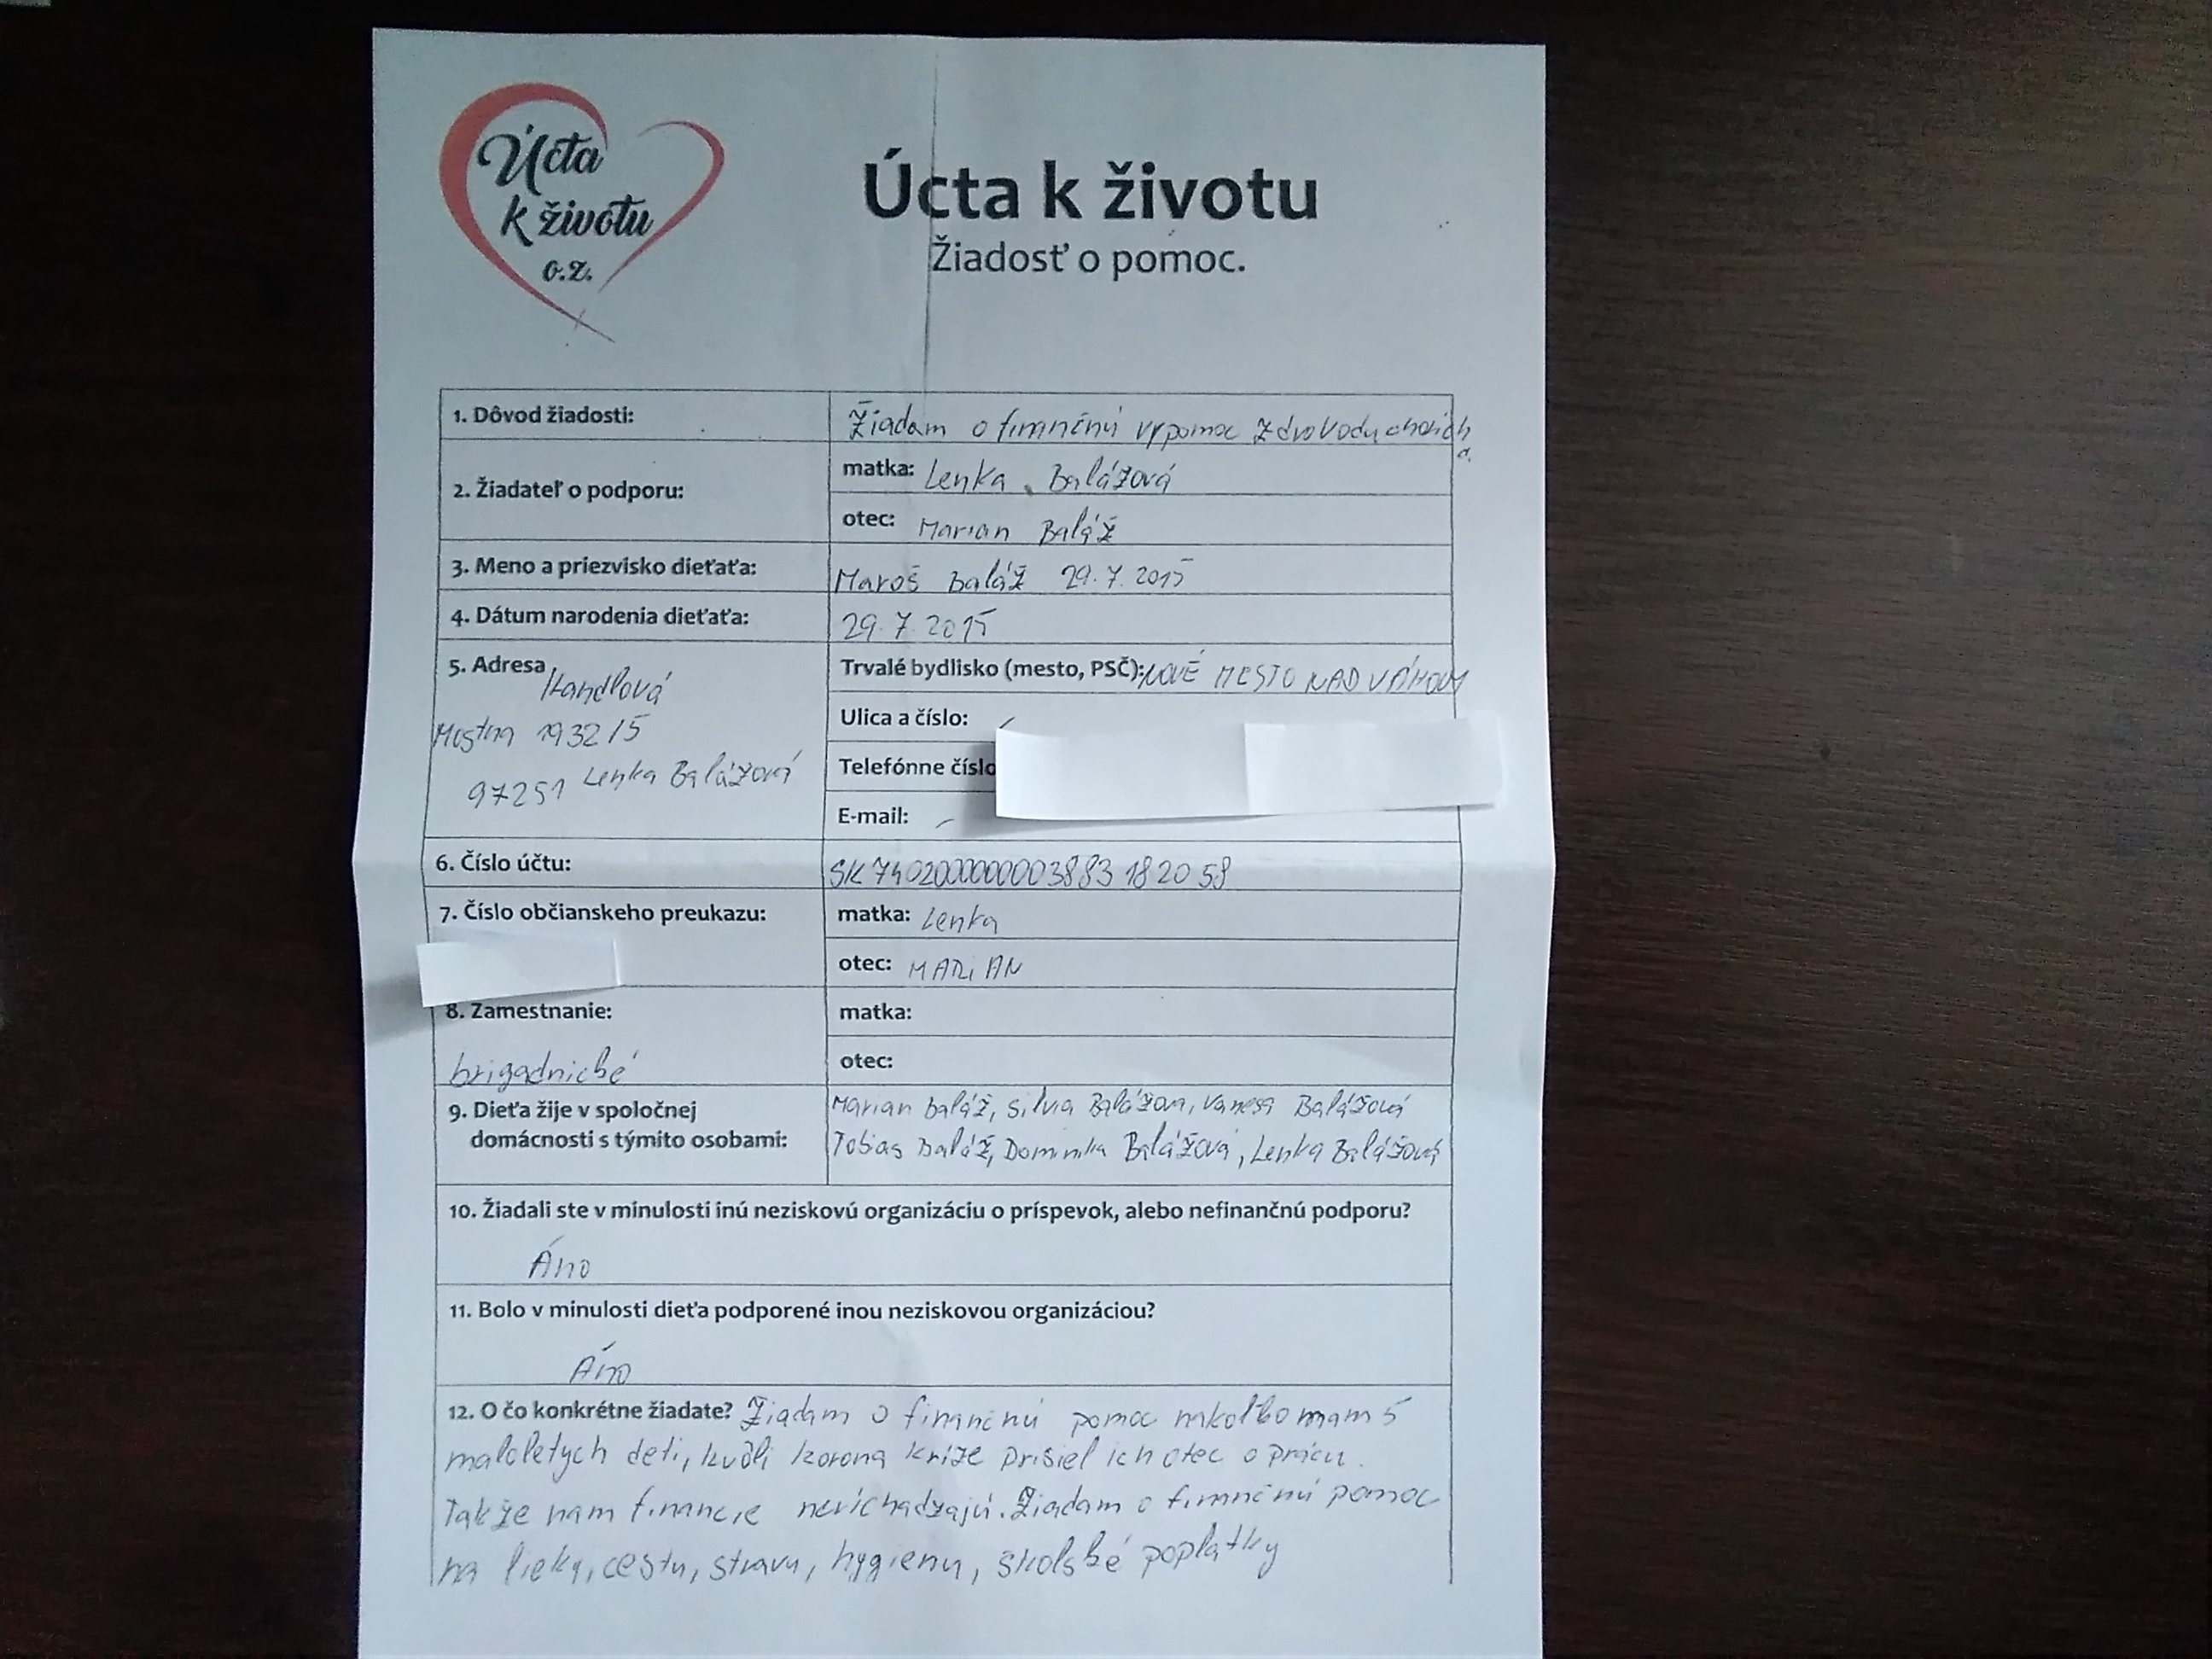 Úcta
k životu
o.z.
Úcta k životu
Žiadosť o pomoc.
1. Dôvod žiadosti: Žiadam o finančnú vypomoc
2. Žiadateľ o podporu:
matka: Lenka Balážová
otec: Marian Baláž
3. Meno a priezvisko dieťaťa: Maroš Baláž 29.7.2015
4. Dátum narodenia dieťaťa: 29.7.2015
5. Adresa Handlová
Mostna 1932/5
97251 Lenka Balážová
Trvalé bydlisko (mesto, PSČ): NOVÉ MESTO NAD VÁHOM
Ulica a číslo:
Telefónne číslo
E-mail:
6. Číslo účtu: SK7402000000003883182058
7. Číslo občianskeho preukazu:
matka: Lenka
otec: MARiAN
8. Zamestnanie:
brigadnické
matka:
otec:
9. Dieťa žije v spoločnej
domácnosti s týmito osobami:
Marian baláž, silvia Balážova, Vanesa Balážová
Tobias Baláž, Dominika Balážová, Lenka Balážová
10. Žiadali ste v minulosti inú neziskovú organizáciu o príspevok, alebo nefinančnú podporu?
Áno
11. Bolo v minulosti dieťa podporené inou neziskovou organizáciou?
Áno
12. O čo konkrétne žiadate? Žiadam o finančnú pomoc nakoľko mam 5
maloletych deti, kvôli korona kríze prišiel ich otec o prácu.
Takže nam financie nevichadzajú. Žiadam o finančnú pomoc
na lieky, cestu, stravu, hygienu, školské poplatky